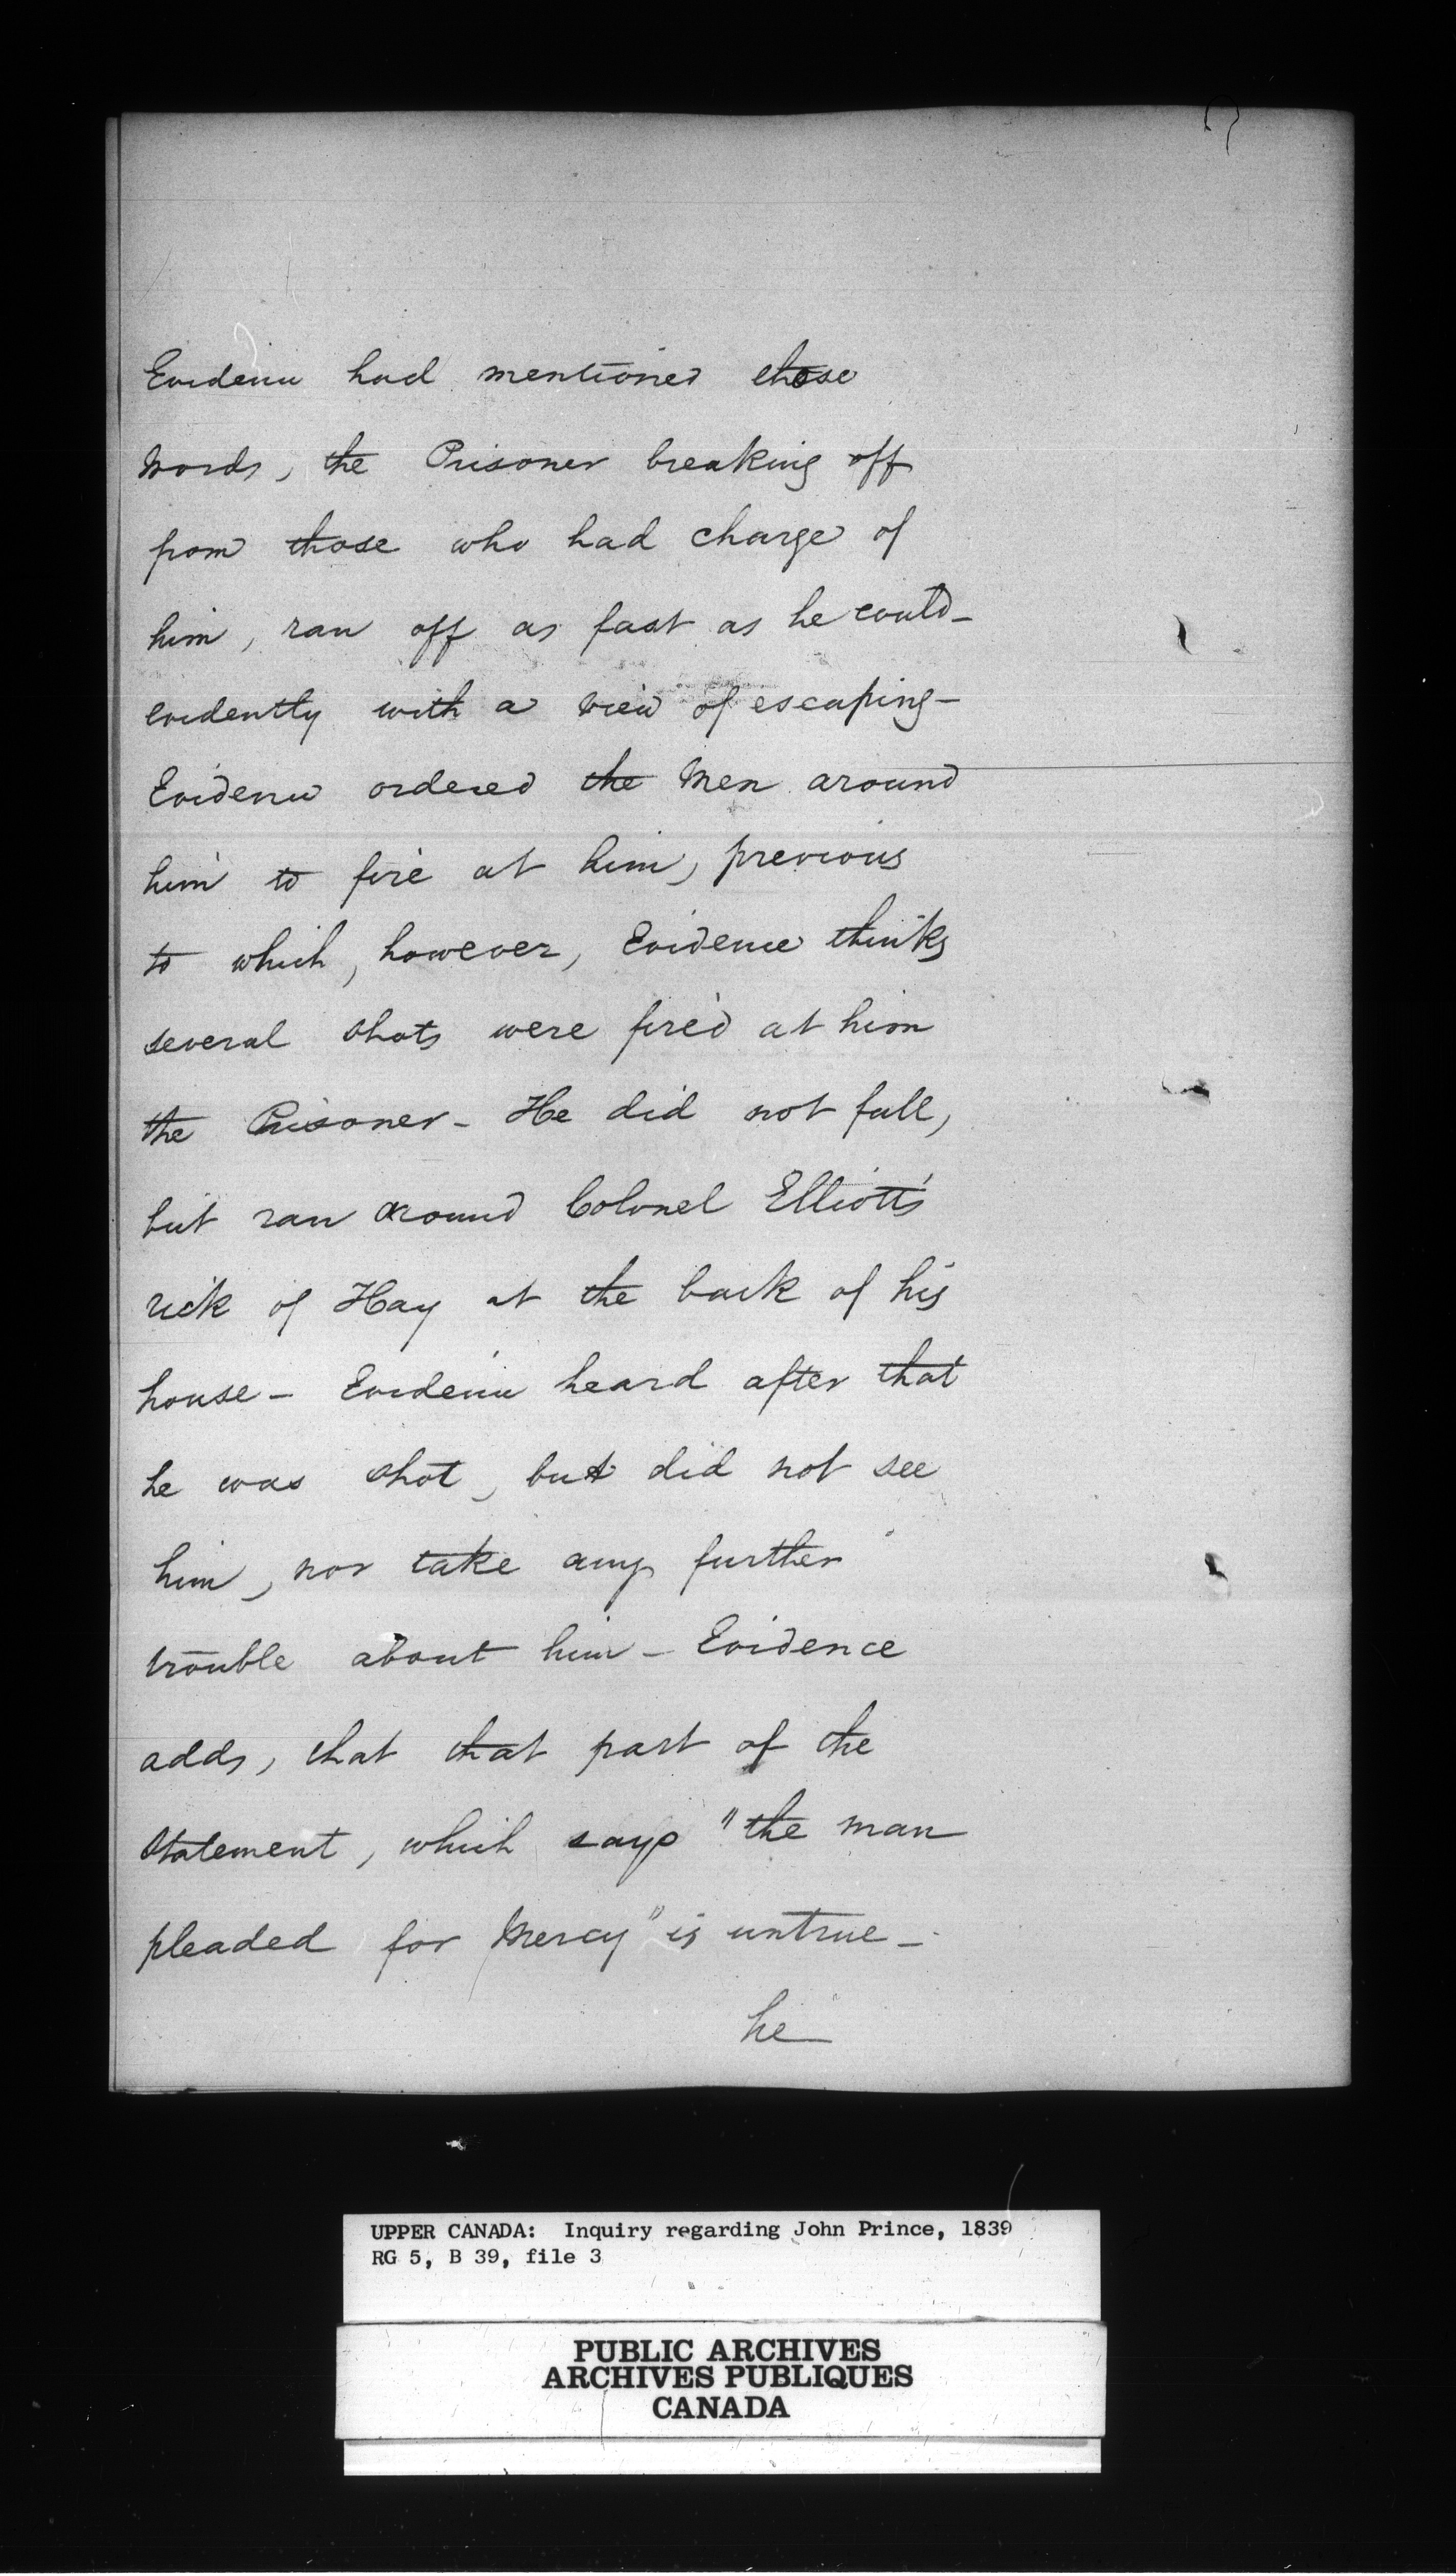 Evidence had mentioned those
words, the Prisoner breaking off
from those who had charge of
him, ran off as fast as he could—
evidently with a view of escaping—
Evidence ordered the Men around
him to fire at him, previous
to which, however, Evidence thinks
several shots were fired at him
the Prisoner— He did not fall,
but ran around Colonel Elliott's
rick of Hay at the back of his
house— Evidence heard after that
he was shot, but did not see
him, nor take any further
trouble about him— Evidence
adds, that that part of the
Statement, which says "the man
pleaded for Mercy" is untrue—
he
UPPER CANADA: Inquiry regarding John Prince, 1839
RG 5, B 39, file 3
PUBLIC ARCHIVES
ARCHIVES PUBLIQUES
CANADA